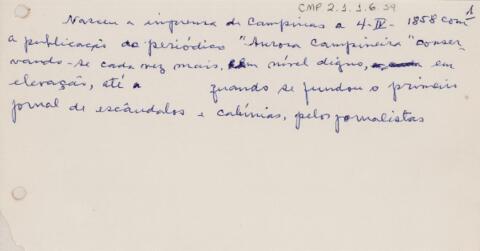 CMP 2.1.1.6.39
1
Nasceu a imprensa de Campinas a 4-IV-1858 com
a publicação do periódico "Aurora Campineira" conser-
vando-se cada vez mais, em nível digno, em
elevação, até a quando se fundou o primeiro
jornal de escândalos e calúnias, pelos jornalistas